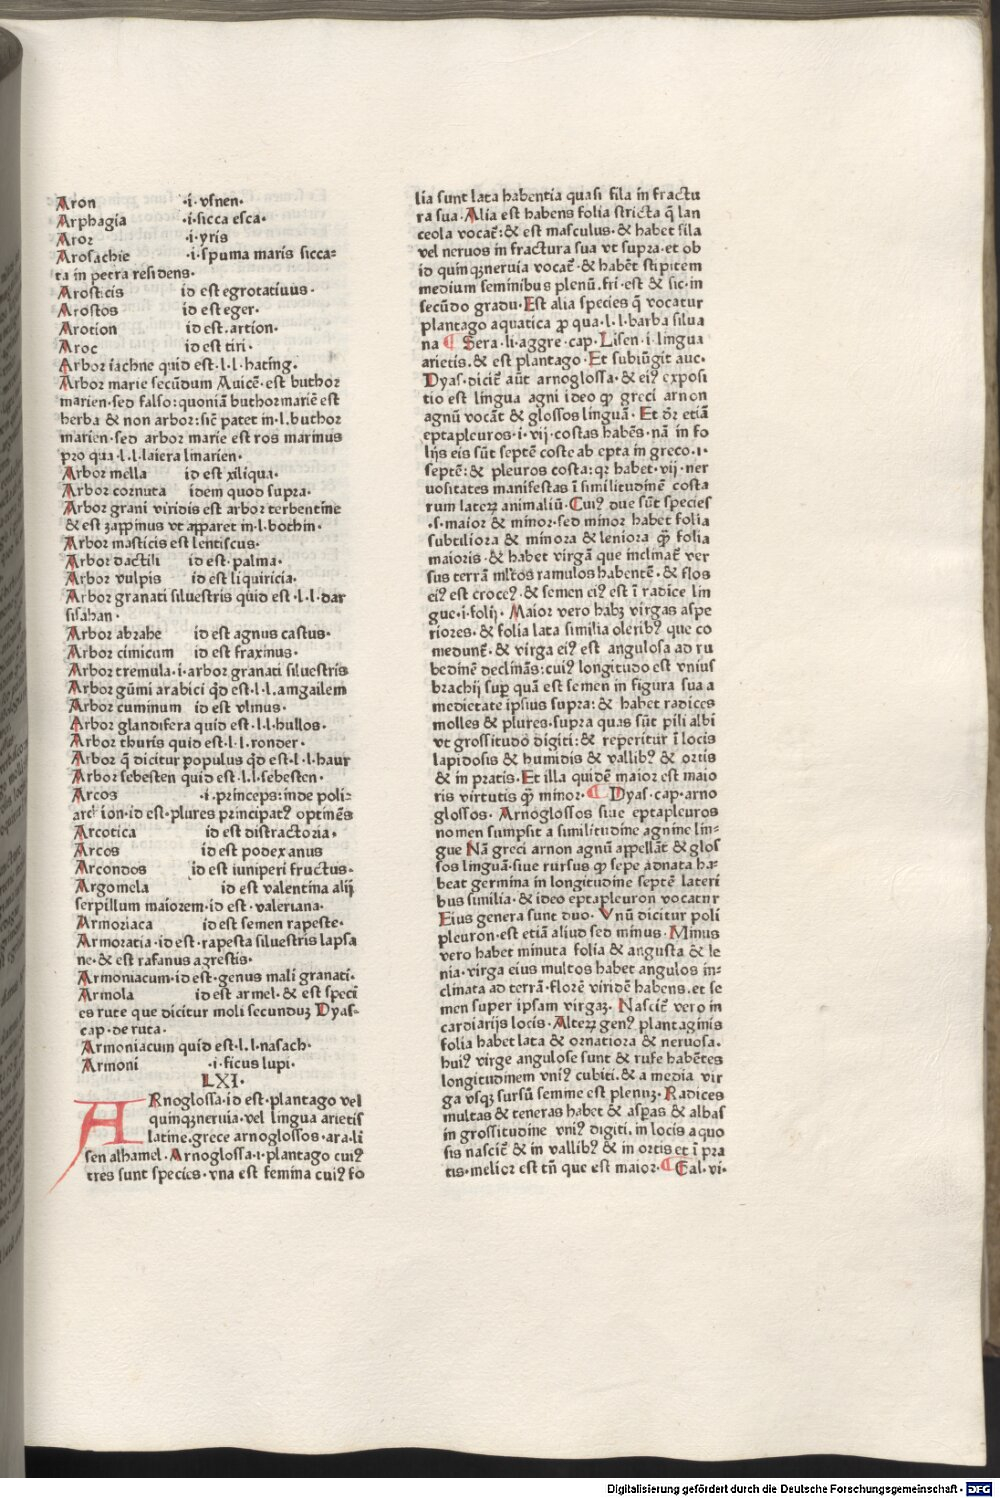 Aron ·i·vſnen·
Arphagia ·i·ſicca eſca·
Aroꝛ ·i·yris
Aroſachie ·i·ſpuma maris ſicca⸗
ta in petra reſidens·
Aroſticis id eſt egrotatiuus·
Aroſtos id eſt eger·
Arotion id eſt·artion·
Aroc id eſt tiri·
Arbor iachne quid eſt·l·l·hating·
Arbor marie ſecūdum Auicē·eſt buthor
marien·ſed falſo:quoniā buthormariē eſt
herba & non arbor:ſic̄ patet in·l·buthor
marien·ſed arbor marie eſt ros marinus
pro qua·l·l·laiera limarien·
Arbor mella id eſt xiliqua·
Arbor cornuta idem quod ſupra·
Arbor grani viridis eſt arbor terbentine
& eſt zappinus vt apparet in·l·bothin·
Arbor maſticis eſt lentiſcus·
Arbor dactili id eſt·palma·
Arbor vulpis id eſt liquiricia·
Arbor granati ſilueſtris quid eſt·l·l·dar
ſiſahan·
Arbor abrahe id eſt agnus caſtus·
Arbor cimicum id eſt fraxinus·
Arbor tremula·i·arbor granati ſilueſtris
Arbor gūmi arabici qd̄ eſt·l·l·amgailem
Arbor cuminum id eſt vlmus·
Arbor glandifera quid eſt·l·l·hullos·
Arbor thuris quid eſt·l·l·ronder·
Arbor q̄ dicitur populus qd̄ eſt·l·l·haur
Arbor ſebeſten quid eſt·l·l·ſebeſten·
Arcos ·i·princeps:inde poli⸗
arc ion·id eſt·plures principatꝰ optinēs
Arcotica id eſt diſtractoria·
Arcos id eſt podex anus
Arcondos id eſt iuniperi fructus·
Argomela id eſt valentina alij
ſerpillum maiorem·id eſt·valeriana·
Armoriaca id eſt ſemen rapeſte·
Armoratia·id eſt·rapeſta ſilueſtris lapſa
ne·& eſt rafanus agreſtis·
Armoniacum·id eſt·genus mali granati·
Armola id eſt armel·& eſt ſpeci
es rute que dicitur moli ſecunduꝫ Dyaſ⸗
cap·de ruta·
Armoniacum quid eſt·l·l·naſach·
Armoni ·i·ficus lupi·
LXI·
ARnogloſſa·id eſt·plantago vel
quinqꝫneruia·vel lingua arietis
latine.grece arnogloſſos·ara·li
ſen alhamel·Arnogloſſa·i·plantago cuiꝰ
tres ſunt ſpecies·vna eſt femina cuiꝰ fo
lia ſunt lata habentia quaſi fila in fractu
ra ſua·Alia eſt habens folia ſtricta q̄ lan
ceola vocat̄:& eſt maſculus·& habet fila
vel neruos in fractura ſua vt ſupra·et ob
id quinqꝫneruia vocat̄·& habēt ſtipitem
medium ſeminibus plenū.fri·eſt & ſic·in
ſecūdo gradu·Eſt alia ſpecies q̄ vocatur
plantago aquatica ꝓ qua·l·l·barba ſilua
na ¶ Sera·li·aggre·cap·Liſen·i·lingua
arietis·& eſt plantago·Et ſubiūgit auc·
Dyaſ·dicit̄ aūt arnogloſſa·& eiꝰ expoſi
tio eſt lingua agni ideo ꝙ greci arnon
agnū vocāt & gloſſos linguā·Et dr̄ etiā
eptapleuros·i·vij·coſtas habēs·nā in fo
lijs eis ſūt ſeptē coſte ab epta in greco·i·
ſeptē:& pleuros coſta:qꝛ habet·vij·ner
uoſitates manifeſtas ī ſimilitudinē coſta
rum lateꝝ animaliū·Cuiꝰ due ſūt ſpecies
·ſ·maior & minor·ſed minor habet folia
ſubtiliora & minora & leniora ꝙ̄ folia
maioris·& habet virgā que inclinat̄ ver
ſus terrā ml̄tos ramulos habentē·& flos
eiꝰ eſt croceꝰ·& ſemen eiꝰ eſt ī radice lin
gue·i·folij·Maior vero habꝫ virgas aſpe
riores·& folia lata ſimilia oleribꝰ que co
medunt̄·& virga eiꝰ eſt anguloſa ad ru
bedinē declinās:cuiꝰ longitudo eſt vnius
brachij ſup̄ quā eſt ſemen in figura ſua a
medietate ipſius ſupra:& habet radices
molles & plures·ſupra quas ſūt pili albi
vt groſſitudo digiti:& reperitur ī locis
lapidoſis & humidis & vallibꝰ & ortis
& in pratis·Et illa quidē maior eſt maio
ris virtutis ꝙ̄ minor·¶ Dyaſ·cap·arno
gloſſos· Arnogloſſos ſiue eptapleuros
nomen ſumpſit a ſimilitudine agnine lin⸗
gue Nā greci arnon agnū appellāt & gloſ
ſos linguā·ſiue rurſus ꝙ ſepe adnata ha⸗
beat germina in longitudine ſeptē lateri
bus ſimilia·& ideo eptapleuron vocatur
Eius genera ſunt duo· Vnū dicitur poli
pleuron·eſt etiā aliud ſed minus·Minus
vero habet minuta folia & anguſta & le
nia·virga eius multos habet angulos in⸗
clinata ad terrā·florē viridē habens.et ſe
men ſuper ipſam virgaꝫ· Naſcit̄ vero in
cardiarijs locis·Alteꝝ genꝰ plantaginis
folia habet lata & ornatiora & neruoſa·
huiꝰ virge anguloſe ſunt & rufe habētes
longitudinem vniꝰ cubiti·& a media vir
ga vſqꝫ ſurſū ſemine eſt plenuꝫ·Radices
multas & teneras habet & aſp̄as & albas
in groſſitudine vniꝰ digiti·in locis aquo
ſis naſcit̄ & in vallibꝰ & in ortis et ī pra
tis·melior eſt tn̄ que eſt maior·¶ Gal·vi·
Digitalisierung gefördert durch die Deutsche Forschungsgemeinschaft - DFG